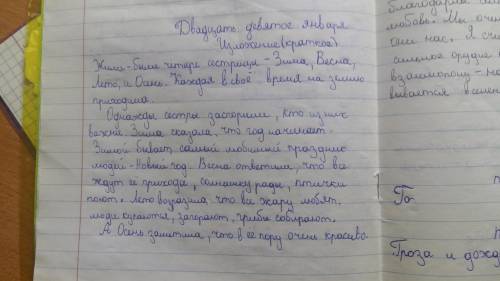 Двадцать девятое января
Изложение (краткое)
Жили-были четыре сестрицы - Зима, Весна,
Лето, и Осень. Каждая в своё время на землю
приходила.
Однажды сестры заспорили, кто из них
важней. Зима сказала, что год начинает.
Зимой бывает самый любимый праздник
людей - Новый год. Весна ответила, что все
ждут её прихода, солнышку рады, птички
поют. Лето возразила, что все жару любят,
люди купаются, загорают, грибы собирают.
А Осень заметила, что в её пору очень красиво.
благодарны
любовь. Мы очень
они нас. Я
сильное орудие
взаимному - не
вывается
Го
Гроза и дожд